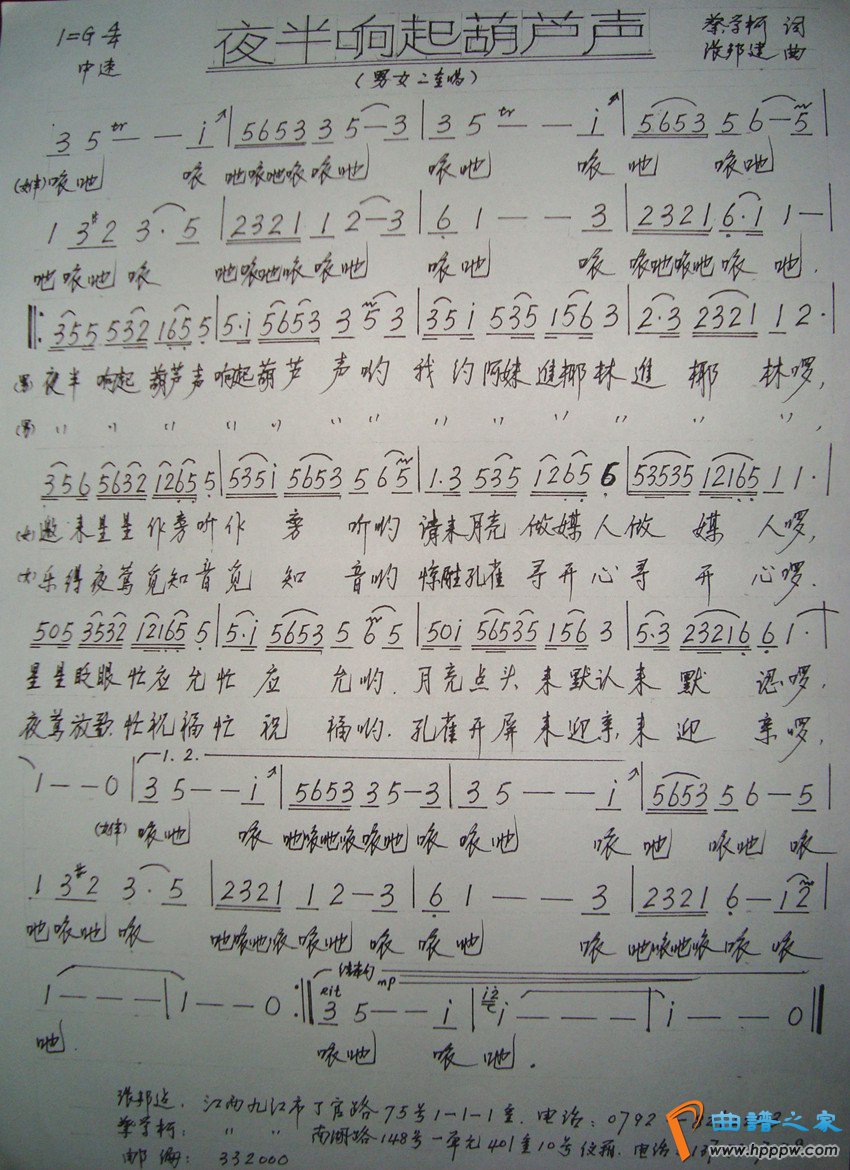 夜半响起葫芦声
1=G 4/4
中速
(男女二重唱)
蔡学柯 词
张邦建 曲
3 5 tr - - i | 5653 3 5 - 3 | 3 5 tr - - i | 5653 5 6 - 5 |
(女伴) 哝吔 哝 吔哝吔哝 哝吔 哝吔 哝 吔 哝吔
1 3 #2 3· 5 | 2321 1 2 - 3 | 6 1 - - 3 | 2321 6·1 1 - |
吔哝吔 哝 吔哝吔哝 哝吔 哝吔 哝 哝吔哝吔 哝 吔.
355 532 165 5 | 5·i 5653 3 5 3 | 35i 535 156 3 | 2·3 2321 1 2· |
(男) 夜半 响起 葫芦声 响起 葫芦 声哟 我约 阿妹 进椰林 进 椰 林啰,
(男) 〃 〃 〃 〃 〃 〃 〃 〃 〃 〃 〃 〃
356 5632 1265 5 | 535i 5653 5 65 | 1·3 535 1265 6 | 53535 12165 1 1· |
(女) 邀来星星作旁听作 旁 听哟 请来月亮 做媒人做 媒 人啰,
(女) 乐得夜莺觅知音觅 知 音哟 惊醒孔雀 寻开心寻 开 心啰.
505 3532 12165 5 | 5·i 5653 5 6 5 | 50i 56535 156 3 | 5·3 23216 6 1· |
星星眨眼忙应允忙 应 允哟. 月亮点头 来默认来 默 认啰,
夜莺放歌忙祝福忙 祝 福哟. 孔雀开屏 来迎亲来 迎 亲啰,
1 - - 0 | 1. 2. 3 5 - - i | 5653 3 5 - 3 | 3 5 - - - i | 5653 5 6 - 5 |
(女伴) 哝吔 哝 吔哝吔哝哝吔 哝 哝吔 哝 吔 哝吔 哝
1 3 #2 3· 5 | 2321 1 2 - 3 | 6 1 - - - 3 | 2321 6 - 12 |
吔哝吔 哝 吔哝吔哝 哝吔 哝 哝吔 哝 吔哝吔哝 哝 哝
结束句
rit mp
1 - - - | 1 - - 0 :| 3 5 - - i | i - - - | i - - 0 ‖
吔. 哝吔 哝吔.
张邦建: 江西九江市丁官路75号1-1-1室. 电话: 0792-
蔡学柯: 〃 〃 南湖路148号一单元401室10号信箱. 电话:
邮编: 332000
曲谱之家
www.hppw.com